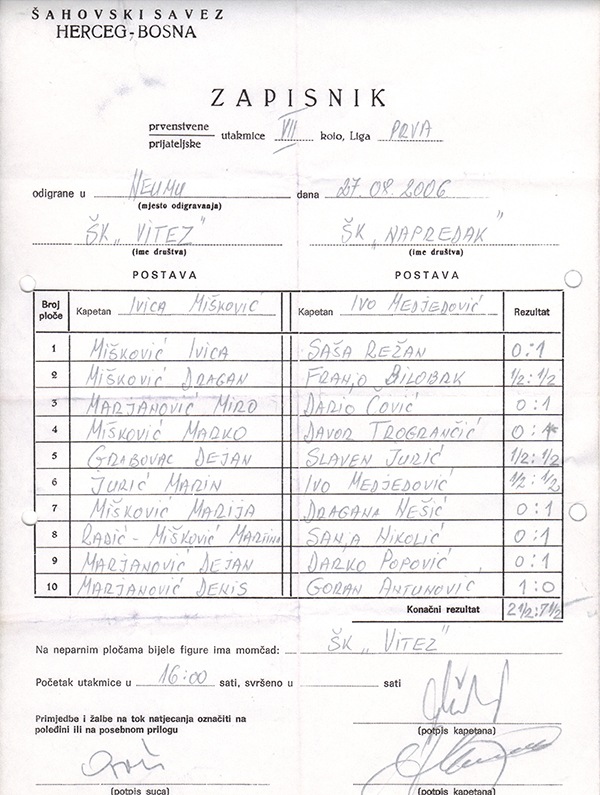 ŠAHOVSKI SAVEZ
HERCEG-BOSNA
ZAPISNIK
prvenstvene
prijateljske
utakmice VII kolo, Liga PRVA
odigrane u NEUMU dana 27.08.2006
(mjesto odigravanja)
ŠK „VITEZ” ŠK „NAPREDAK”
(ime društva) (ime društva)
POSTAVA POSTAVA
Broj ploče Kapetan IVICA MIŠKOVIĆ Kapetan IVO MEDJEDOVIĆ Rezultat
1 MIŠKOVIĆ IVICA SAŠA REŽAN 0:1
2 MIŠKOVIĆ DRAGAN FRANJO BILOBRK 1/2:1/2
3 MARJANOVIĆ MIRO DARIO ČOVIĆ 0:1
4 MIŠKOVIĆ MARKO DAVOR TROGRANČIĆ 0:1
5 GRABOVAC DEJAN SLAVEN JURIĆ 1/2:1/2
6 JURIĆ MARIN IVO MEDJEDOVIĆ 1/2:1/2
7 MIŠKOVIĆ MARIJA DRAGANA NEŠIĆ 0:1
8 RADIĆ-MIŠKOVIĆ SANJA NIKOLIĆ 0:1
9 MARJANOVIĆ DEJAN DARKO POPOVIĆ 0:1
10 MARJANOVIĆ DENIS GORAN ANTUNOVIĆ 1:0
Konačni rezultat 2 1/2:7 1/2
Na neparnim pločama bijele figure ima momčad: ŠK „VITEZ”
Početak utakmice u 16:00 sati, svršeno u sati
Primjedbe i žalbe na tok natjecanja označiti na
poleđini ili na posebnom prilogu
(potpis kapetana)
(potpis suca) (potpis kapetana)